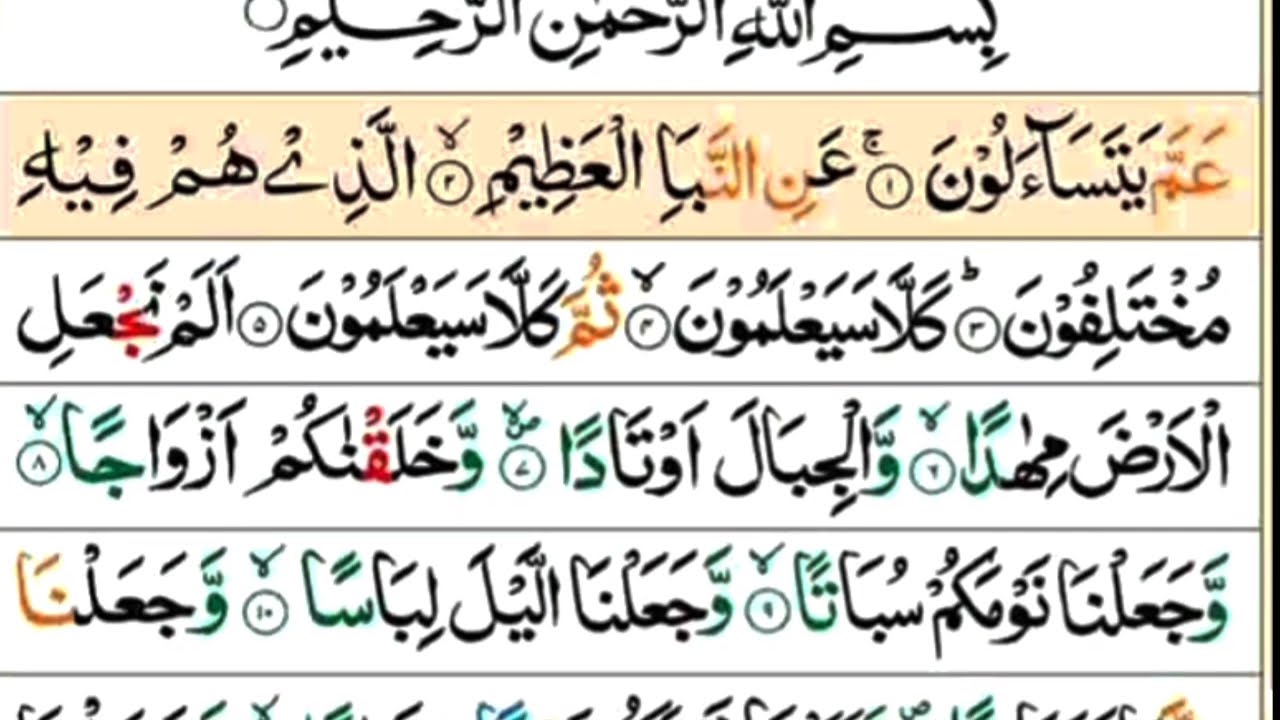 بِسْمِ اللّٰهِ الرَّحْمٰنِ الرَّحِيْمِ
عَمَّ يَتَسَآءَلُوْنَ ۚ‏﴿۱﴾ عَنِ النَّبَاِ الْعَظِيْمِ ۙ‏﴿۲﴾ الَّذِىْ هُمْ فِيْهِ
مُخْتَلِفُوْنَ ؕ‏﴿۳﴾ كَلَّا سَيَعْلَمُوْنَ ۙ‏﴿۴﴾ ثُمَّ كَلَّا سَيَعْلَمُوْنَ ‏﴿۵﴾ اَلَمْ نَجْعَلِ
الْاَرْضَ مِهٰدًا ۙ‏﴿۶﴾ وَّالْجِبَالَ اَوْتَادًا ۪ۙ‏﴿۷﴾ وَّخَلَقْنٰكُمْ اَزْوَاجًا ۙ‏﴿۸﴾
وَّجَعَلْنَا نَوْمَكُمْ سُبَاتًا ۙ‏﴿۹﴾ وَّجَعَلْنَا الَّيْلَ لِبَاسًا ۙ‏﴿۱۰﴾ وَّجَعَلْنَا